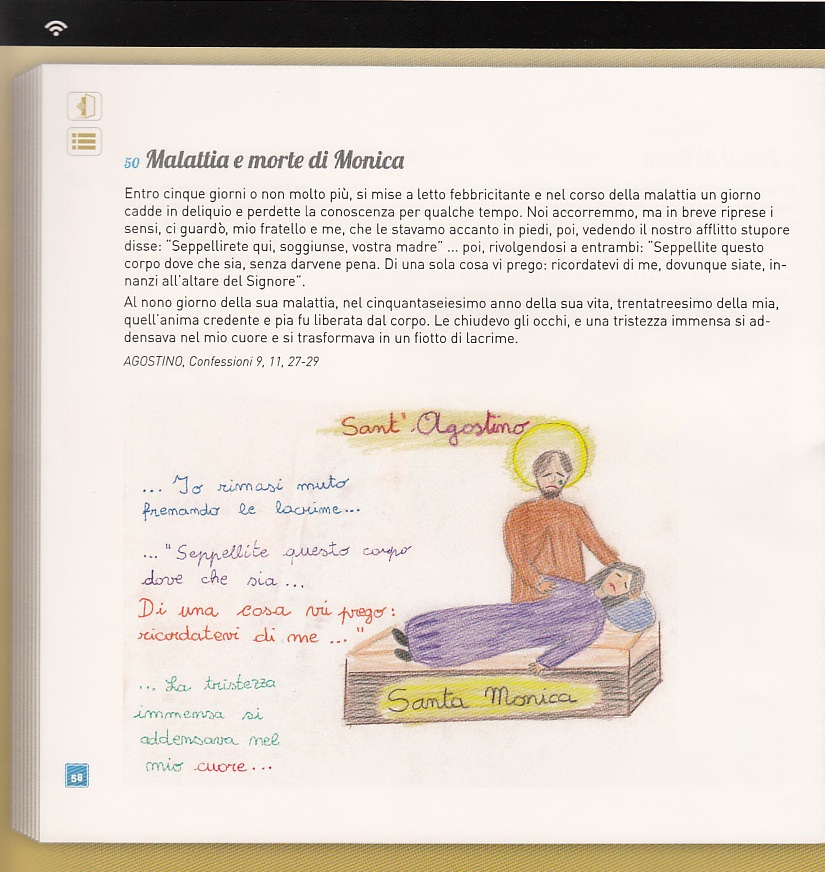 50 Malattia e morte di Monica
Entro cinque giorni o non molto più, si mise a letto febbricitante e nel corso della malattia un giorno
cadde in deliquio e perdette la conoscenza per qualche tempo. Noi accorremmo, ma in breve riprese i
sensi, ci guardò, mio fratello e me, che le stavamo accanto in piedi, poi, vedendo il nostro afflitto stupore
disse: “Seppellirete qui, soggiunse, vostra madre” ... poi, rivolgendosi a entrambi: “Seppellite questo
corpo dove che sia, senza darvene pena. Di una sola cosa vi prego: ricordatevi di me, dovunque siate, in-
nanzi all'altare del Signore”.
Al nono giorno della sua malattia, nel cinquantaseiesimo anno della sua vita, trentatreesimo della mia,
quell'anima credente e pia fu liberata dal corpo. Le chiudevo gli occhi, e una tristezza immensa si ad-
densava nel mio cuore e si trasformava in un fiotto di lacrime.
AGOSTINO, Confessioni 9, 11, 27-29
Sant' Agostino
... Io rimasi muto
frenando le lacrime...
... "Seppellite questo corpo
dove che sia ...
Di una cosa vi prego:
ricordatevi di me ... "
... La tristezza
immensa si
addensava nel
mio cuore...
Santa Monica
58